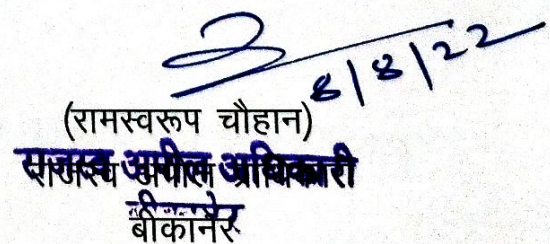 8/8/22
(रामस्वरूप चौहान)
राजस्व अपील अधिकारी
बीकानेर